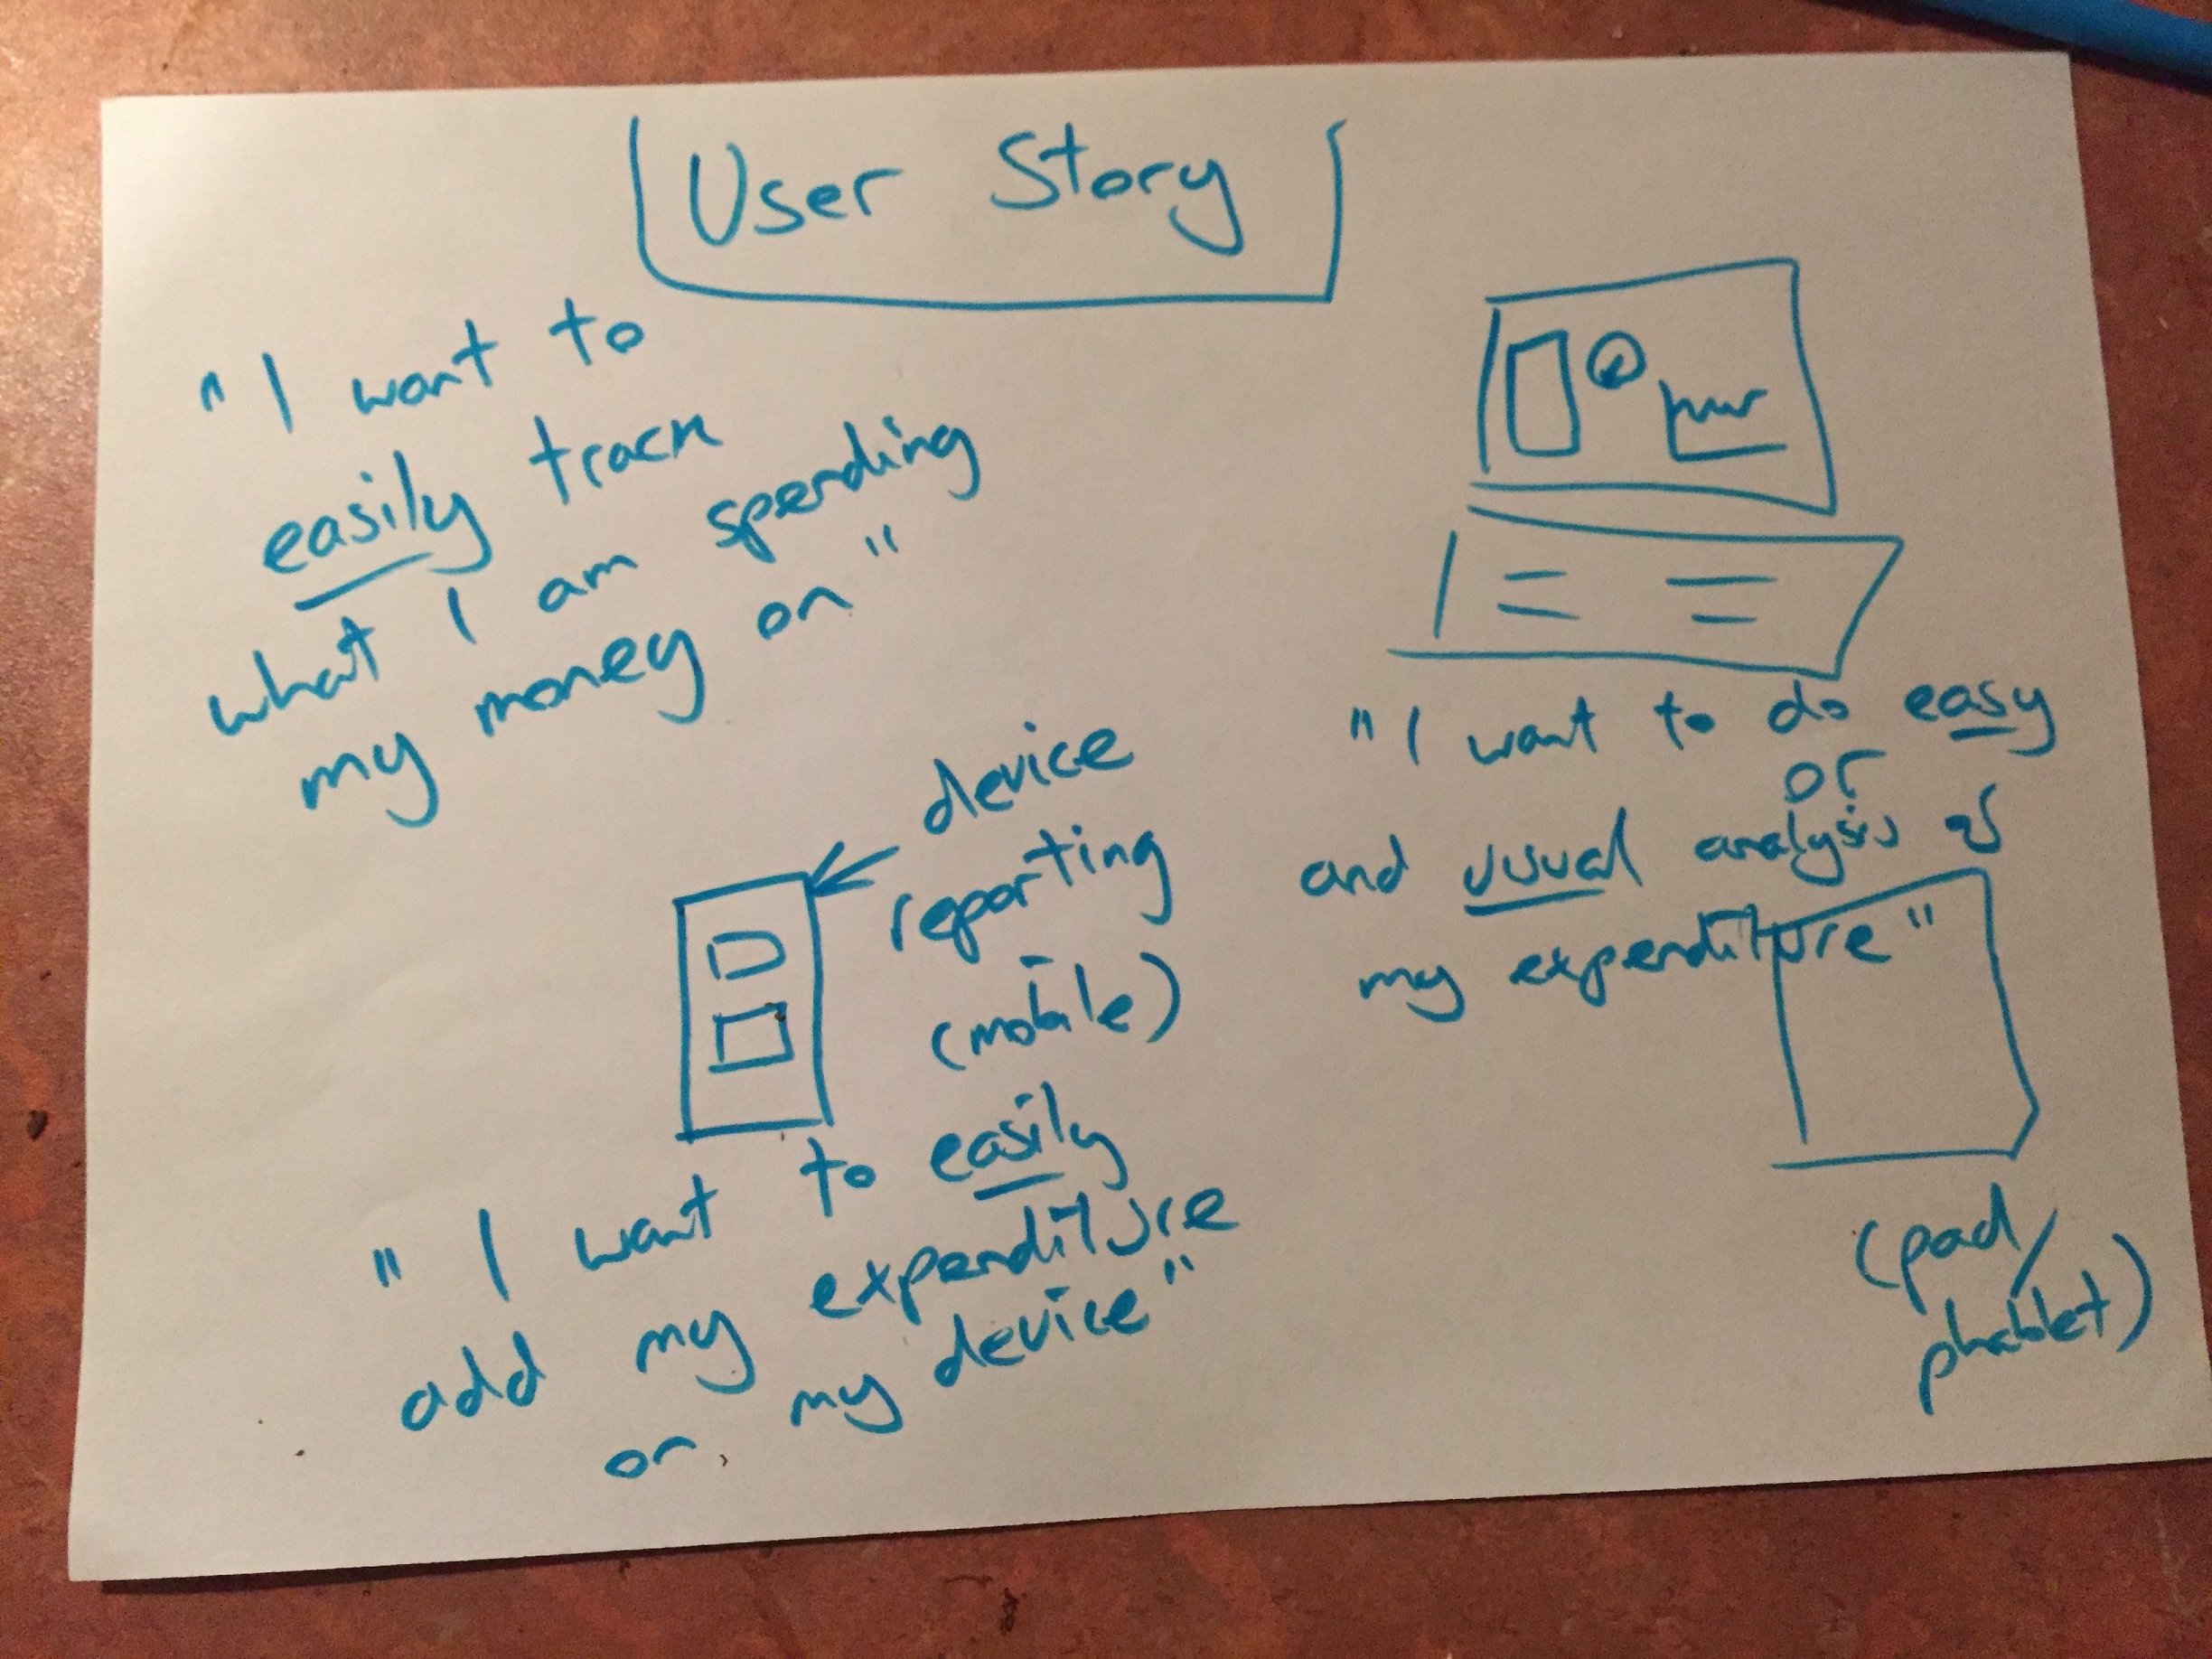 User Story
" I want to
easily track
what I am spending
my money on "
device
reporting
(mobile)
" I want to easily
add my expenditure
on my device "
" I want to do easy
or
and usual analysis of
my expenditure "
(pad/
phablet)